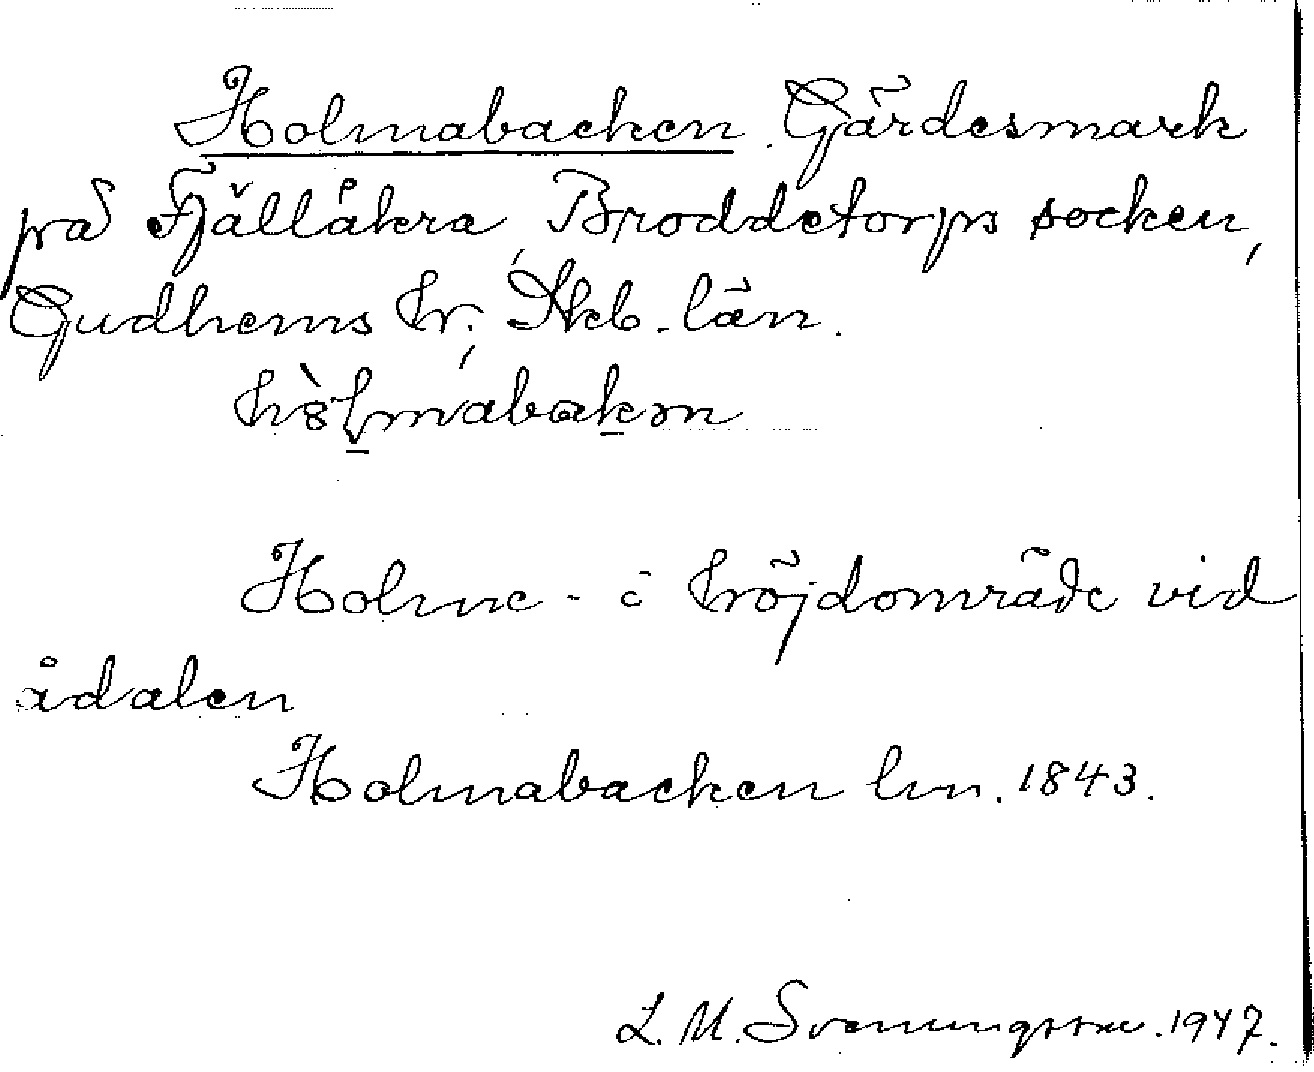 Holmabacken. Gärdesmark
på Fjällåkra, Broddetorps socken,
Gudhems hr, Skb. län.
Holme - i höjdområde vid
ådalen
Holmabacken lm. 1843.
L. M. Svenungsson. 1947.